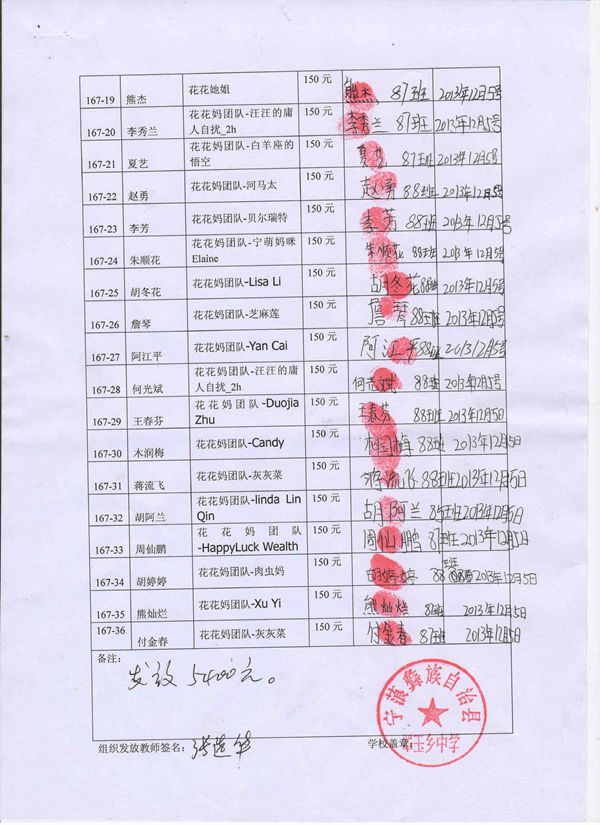 167-19 熊杰 花花她姐 150 元 熊杰 87班 2013年12月5号
167-20 李秀兰 花花妈团队-汪汪的庸 150 元 李秀兰 87班 2013年12月5号
人自扰_2h
167-21 夏艺 花花妈团队-白羊座的 150 元 夏艺 87班 2013年12月5号
悟空
167-22 赵勇 花花妈团队-河马太 150 元 赵勇 88班 2013年12月5号
167-23 李芳 花花妈团队-贝尔瑞特 150 元 李芳 88班 2013年12月5号
167-24 朱顺花 花花妈团队-宁萌妈咪 150 元 朱顺花 88班 2013年12月5号
Elaine
167-25 胡冬花 花花妈团队-Lisa Li 150 元 胡冬花 88班 2013年12月5号
167-26 詹琴 花花妈团队-芝麻莲 150 元 詹琴 88班 2013年12月5号
167-27 阿江平 花花妈团队-Yan Cai 150 元 阿江平 88班 2013年12月5号
167-28 何光斌 花花妈团队-汪汪的庸 150 元 何光斌 88班 2013年12月5号
人自扰_2h
167-29 王春芬 花花妈团队-Duojia 150 元 王春芬 88班 2013年12月5号
Zhu
167-30 木润梅 花花妈团队-Candy 150 元 88班 2013年12月5日
167-31 蒋流飞 花花妈团队-灰灰菜 150 元 蒋流飞 88班 2013年12月5日
167-32 胡阿兰 花花妈团队-linda Lin 150 元 胡阿兰 85班 2013年12月5日
Qin
167-33 周仙鹏 花花妈团队 150 元 周仙鹏 87班 2013年12月5日
-HappyLuck Wealth
167-34 胡婷婷 花花妈团队-肉虫妈 150 元 胡婷婷 88班 2013年12月5日
167-35 熊灿烂 花花妈团队-Xu Yi 150 元 熊灿烂 87班 2013年12月5日
167-36 付金春 花花妈团队-灰灰菜 150 元 付金春 87班 2013年12月5日
备注：
发放5400元。
宁蒗彝族自治县
玉乡中学
组织发放教师签名： 学校盖章：